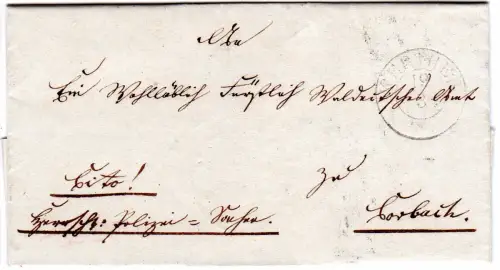 An
Ein Wohllöblich Fürstlich Waldeckisches Amt
Cito!
zu
Herrschl: Polizei = Sachen.
Corbach.